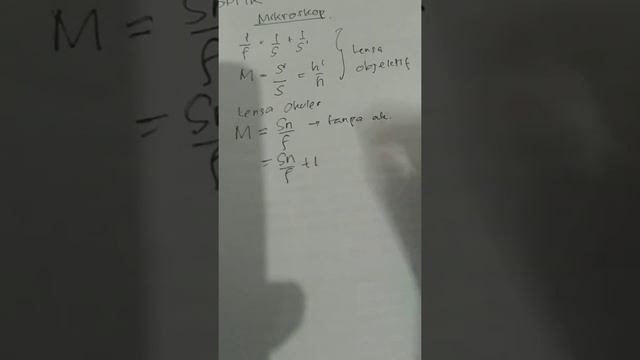 OPTIK
Mikroskop.
1/f = 1/s + 1/s'
M = s'/s = h'/h
Lensa objektif
Lensa Okuler
M = Sn/f → tanpa ak.
= Sn/f + 1